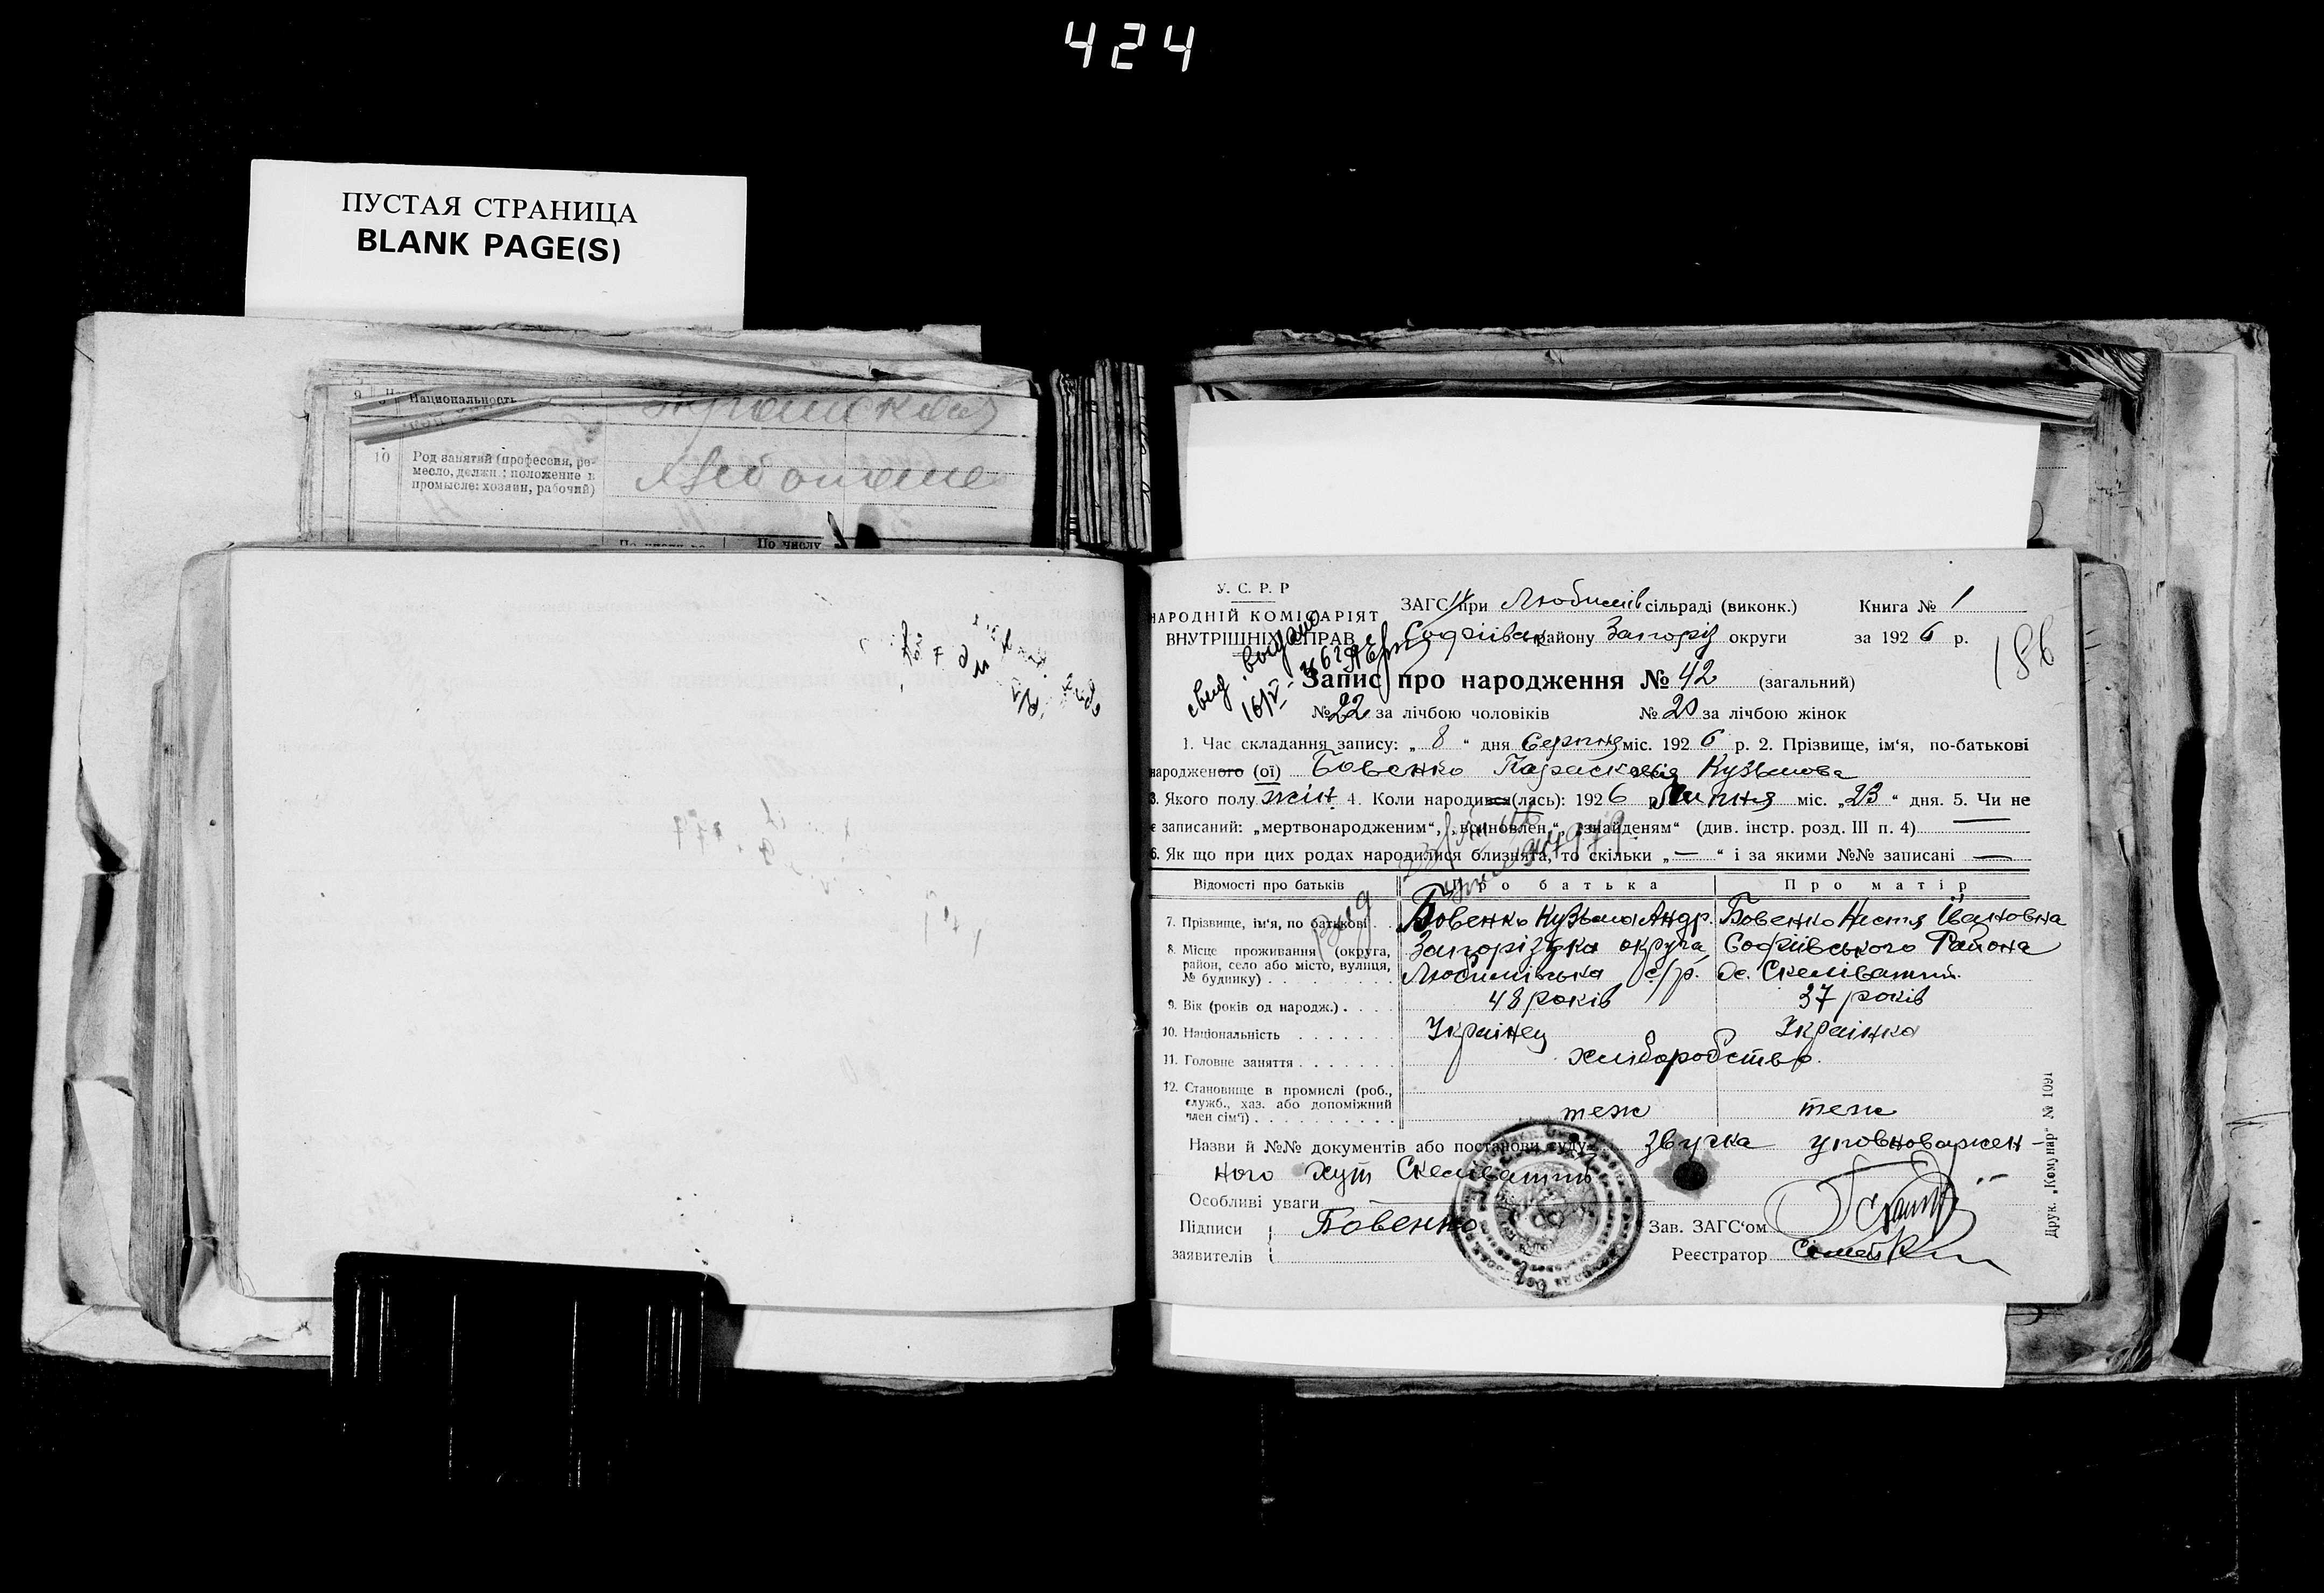 424
ПУСТАЯ СТРАНИЦА
BLANK PAGE(S)
Национальность
10 Род занятий (профессия, ре-
месло, должн.; положение в
промысле: хозяин, рабочий)
По числу
У. С. Р. Р
НАРОДНІЙ КОМІСАРІЯТ
ВНУТРІШНІХ СПРАВ
ЗАГС при Любимів сільраді (виконк.) Книга № 1
Софіївськ району Запоріз округи за 1926 р.
186
свид. выдано
16/V-
Запис про народження № 42 (загальний)
№ 22 за лічбою чоловіків № 20 за лічбою жінок
1. Час складання запису: „ 8 “ дня Серпня міс. 1926 р. 2. Прізвище, ім‘я, по-батькові
народженого (ої) Бовенко Параскевія Кузьмова
3. Якого полу жін. 4. Коли народився(лась): 1926 р. Липня міс. „23“ дня. 5. Чи не
є записаний: „мертвонародженим“, „всиновлен“, „знайденям“ (див. інстр. розд. III п. 4) —
6. Як що при цих родах народилися близнята, то скільки „—“ і за якими №№ записані —
Відомості про батьків Про батька Про матір
7. Прізвище, ім‘я, по батькові . . Бовенко Кузьма Андр. Бовенко Настя Івановна
8. Місце проживання (округа, Запорізька округа Софіївського Района
район, село або місто, вулиця, Любимівська с/р. ос. Скелеватий
№ будинку) . . . . . . . . .
9. Вік (років од народж.) . . . . 48 років 37 років
10. Національність . . . . . . . Українец Українка
11. Головне заняття . . . . . . . хліборобство.
12. Становище в промислі (роб.,
служб., хаз. або допоміжний
член сім‘ї) . . . . . . . . . . теж теж
Назви й №№ документів або постанови суду Звучка уповноважен-
ного хут Скелеватий
Особливі уваги
Підписи Бовенко Зав. ЗАГС‘ом
заявителів Реєстратор
Друк. „Комунар“ № 1091